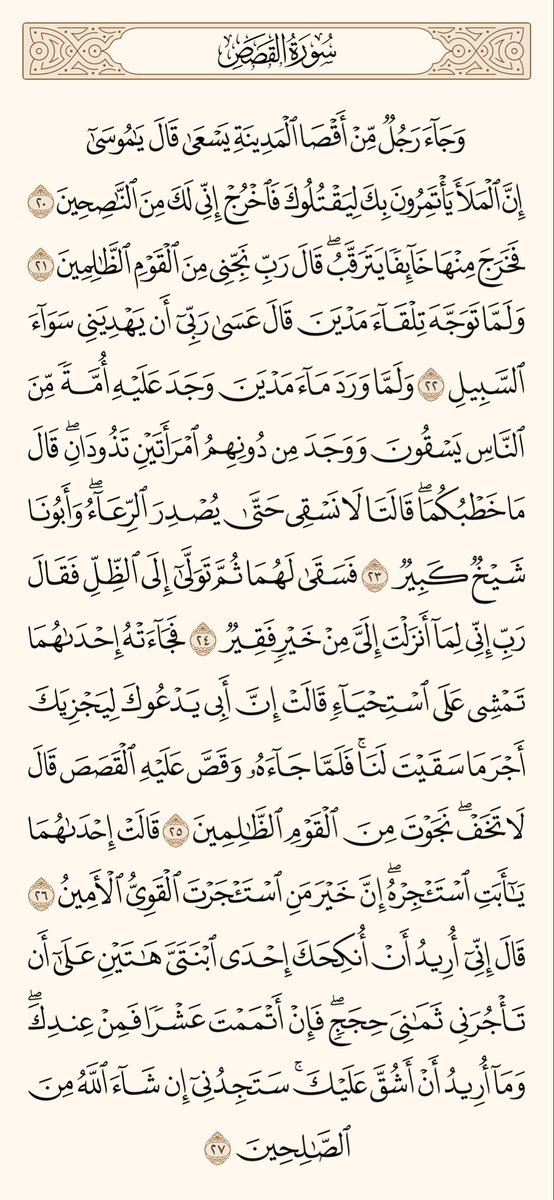 سُورَةُ القَصَصِ
وَجَآءَ رَجُلٌ مِّنۡ أَقۡصَا ٱلۡمَدِينَةِ يَسۡعَىٰ قَالَ يَٰمُوسَىٰٓ
إِنَّ ٱلۡمَلَأَ يَأۡتَمِرُونَ بِكَ لِيَقۡتُلُوكَ فَٱخۡرُجۡ إِنِّي لَكَ مِنَ ٱلنَّٰصِحِينَ ٢٠
فَخَرَجَ مِنۡهَا خَآئِفٗا يَتَرَقَّبُۖ قَالَ رَبِّ نَجِّنِي مِنَ ٱلۡقَوۡمِ ٱلظَّٰلِمِينَ ٢١
وَلَمَّا تَوَجَّهَ تِلۡقَآءَ مَدۡيَنَ قَالَ عَسَىٰ رَبِّيٓ أَن يَهۡدِيَنِي سَوَآءَ
ٱلسَّبِيلِ ٢٢ وَلَمَّا وَرَدَ مَآءَ مَدۡيَنَ وَجَدَ عَلَيۡهِ أُمَّةٗ مِّنَ
ٱلنَّاسِ يَسۡقُونَ وَوَجَدَ مِن دُونِهِمُ ٱمۡرَأَتَيۡنِ تَذُودَانِۖ قَالَ
مَا خَطۡبُكُمَاۖ قَالَتَا لَا نَسۡقِي حَتَّىٰ يُصۡدِرَ ٱلرِّعَآءُۖ وَأَبُونَا
شَيۡخٞ كَبِيرٞ ٢٣ فَسَقَىٰ لَهُمَا ثُمَّ تَوَلَّىٰٓ إِلَى ٱلظِّلِّ فَقَالَ
رَبِّ إِنِّي لِمَآ أَنزَلۡتَ إِلَيَّ مِنۡ خَيۡرٖ فَقِيرٞ ٢٤ فَجَآءَتۡهُ إِحۡدَىٰهُمَا
تَمۡشِي عَلَى ٱسۡتِحۡيَآءٖ قَالَتۡ إِنَّ أَبِي يَدۡعُوكَ لِيَجۡزِيَكَ
أَجۡرَ مَا سَقَيۡتَ لَنَاۚ فَلَمَّا جَآءَهُۥ وَقَصَّ عَلَيۡهِ ٱلۡقَصَصَ قَالَ
لَا تَخَفۡۖ نَجَوۡتَ مِنَ ٱلۡقَوۡمِ ٱلظَّٰلِمِينَ ٢٥ قَالَتۡ إِحۡدَىٰهُمَا
يَٰٓأَبَتِ ٱسۡتَـٔۡجِرۡهُۖ إِنَّ خَيۡرَ مَنِ ٱسۡتَـٔۡجَرۡتَ ٱلۡقَوِيُّ ٱلۡأَمِينُ ٢٦
قَالَ إِنِّيٓ أُرِيدُ أَنۡ أُنكِحَكَ إِحۡدَى ٱبۡنَتَيَّ هَٰتَيۡنِ عَلَىٰٓ أَن
تَأۡجُرَنِي ثَمَٰنِيَ حِجَجٖۖ فَإِنۡ أَتۡمَمۡتَ عَشۡرٗا فَمِنۡ عِندِكَۖ
وَمَآ أُرِيدُ أَنۡ أَشُقَّ عَلَيۡكَۚ سَتَجِدُنِيٓ إِن شَآءَ ٱللَّهُ مِنَ
ٱلصَّٰلِحِينَ ٢٧